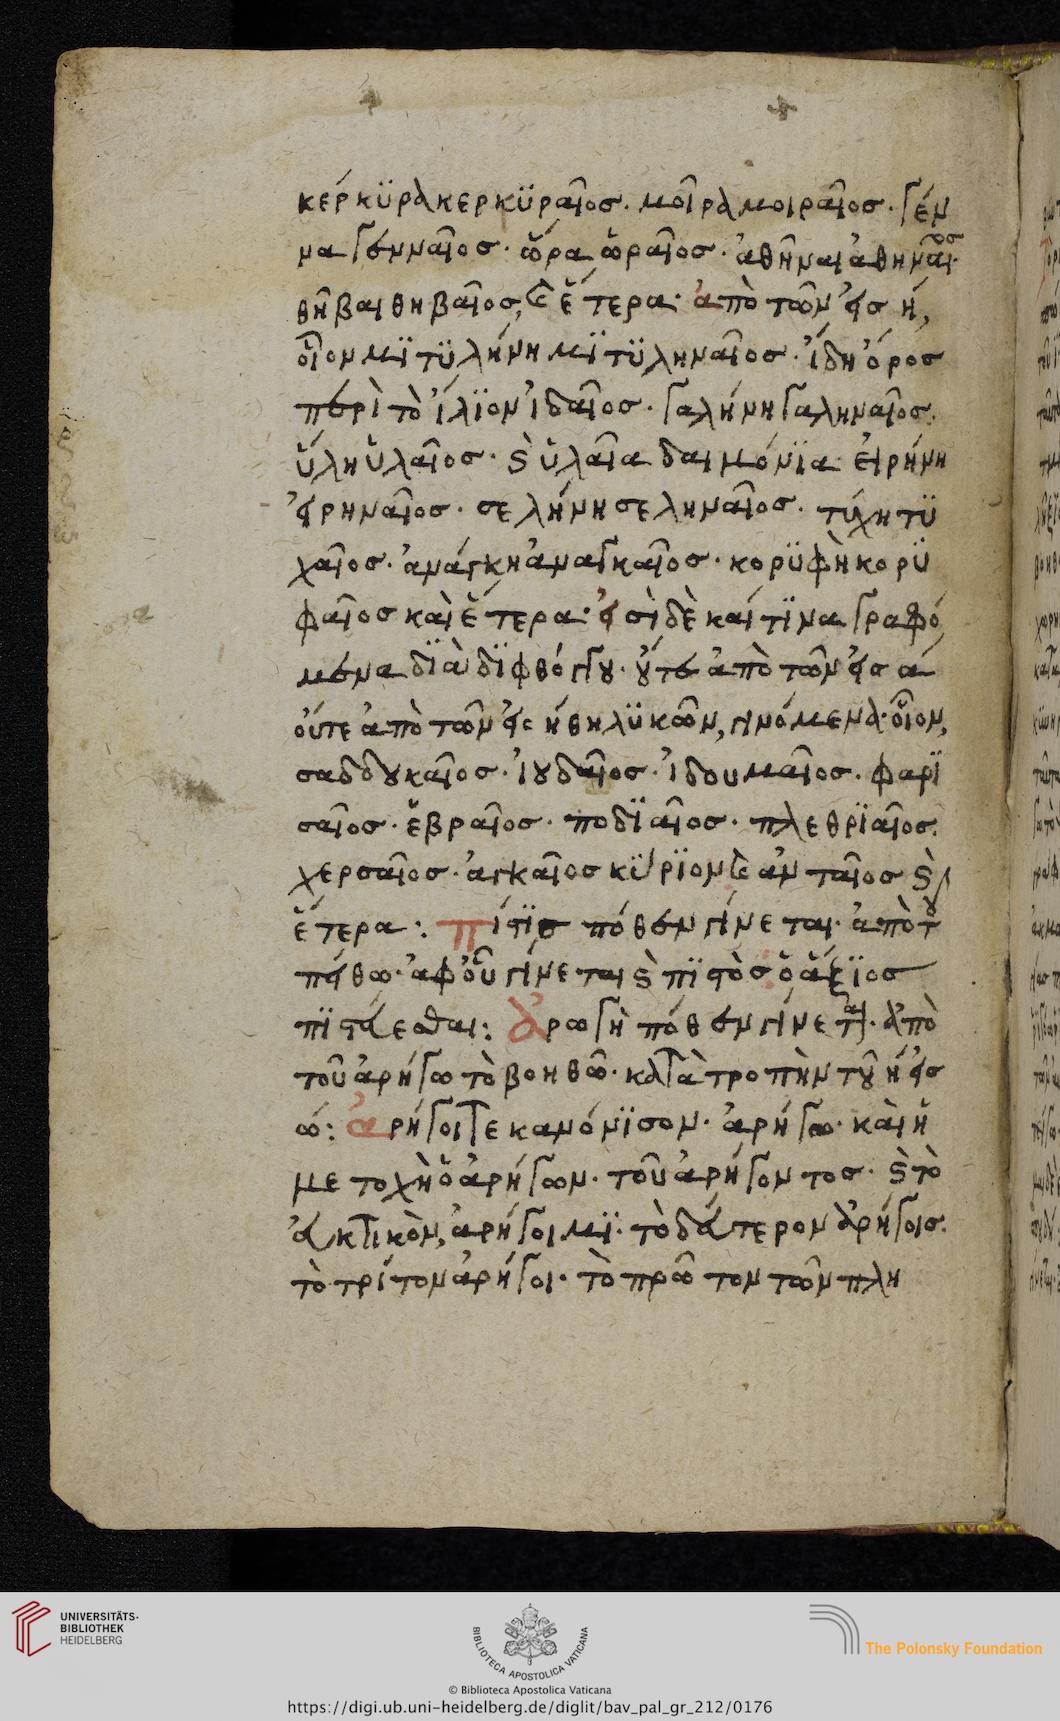 κέρκϋρα κερκϋραῖος. μοῖρα μοιραῖος. γέν
να γενναῖος. ὥρα ὡραῖος. ἀθῆναι ἀθηναῖος.
θῆβαι θηβαῖος, καὶ ἕτερα. ἀπὸ τῶν εἰς η,
οἷον μϊτϋλήνη μϊτϋληναῖος. ἴδη ὄρος
περὶ τὸ ἴλϊον ἰδαῖος. γαλήνη γαληναῖος.
ὕλη ὑλαῖος. καὶ ὑλαῖα δαιμόνϊα. εἰρήνη
εἰρηναῖος. σελήνη σεληναῖος. τύχη τϋ
χαῖος. ἀνάγκη ἀναγκαῖος. κορϋφὴ κορϋ
φαῖος καὶ ἕτερα. εἰσὶ δὲ καί τϊνα γραφό
μενα δϊὰ δϊφθόγγου. οὔτε ἀπὸ τῶν εἰς α
οὔτε ἀπὸ τῶν εἰς η θηλϋκῶν, γινόμενα. οἷον,
σαδδουκαῖος. ἰουδαῖος. ἰδουμαῖος. φαρϊ
σαῖος. ἑβραῖος. ποδϊαῖος. πλεθρϊαῖος.
χερσαῖος. ἀγκαῖος κύρϊον καὶ ἀνταῖος καὶ
ἕτερα: πίστϊς πόθεν γίνεται. ἀπὸ τοῦ
πείθω. ἀφ' οὗ γίνεται καὶ πϊστὸς ὁ ἄξϊος
πϊστεύεσθαι: ἀρωγὴ πόθεν γίνεται. ἀπὸ
τοῦ ἀρήγω τὸ βοηθῶ. κατὰ τροπὴν τοῦ η εἰς
ω: ἀρήγοιτε κανόνϊσον. ἀρήγω. καὶ ἡ
μετοχὴ ὁ ἀρήγων. τοῦ ἀρήγοντος. καὶ τὸ
εὐκτικὸν, ἀρήγοιμϊ. τὸ δεύτερον ἀρήγοις.
τὸ τρίτον ἀρήγοι. τὸ πρῶτον τῶν πλη
UNIVERSITÄTS-
BIBLIOTHEK
HEIDELBERG
BIBLIOTECA APOSTOLICA VATICANA
The Polonsky Foundation
© Biblioteca Apostolica Vaticana
https://digi.ub.uni-heidelberg.de/diglit/bav_pal_gr_212/0176